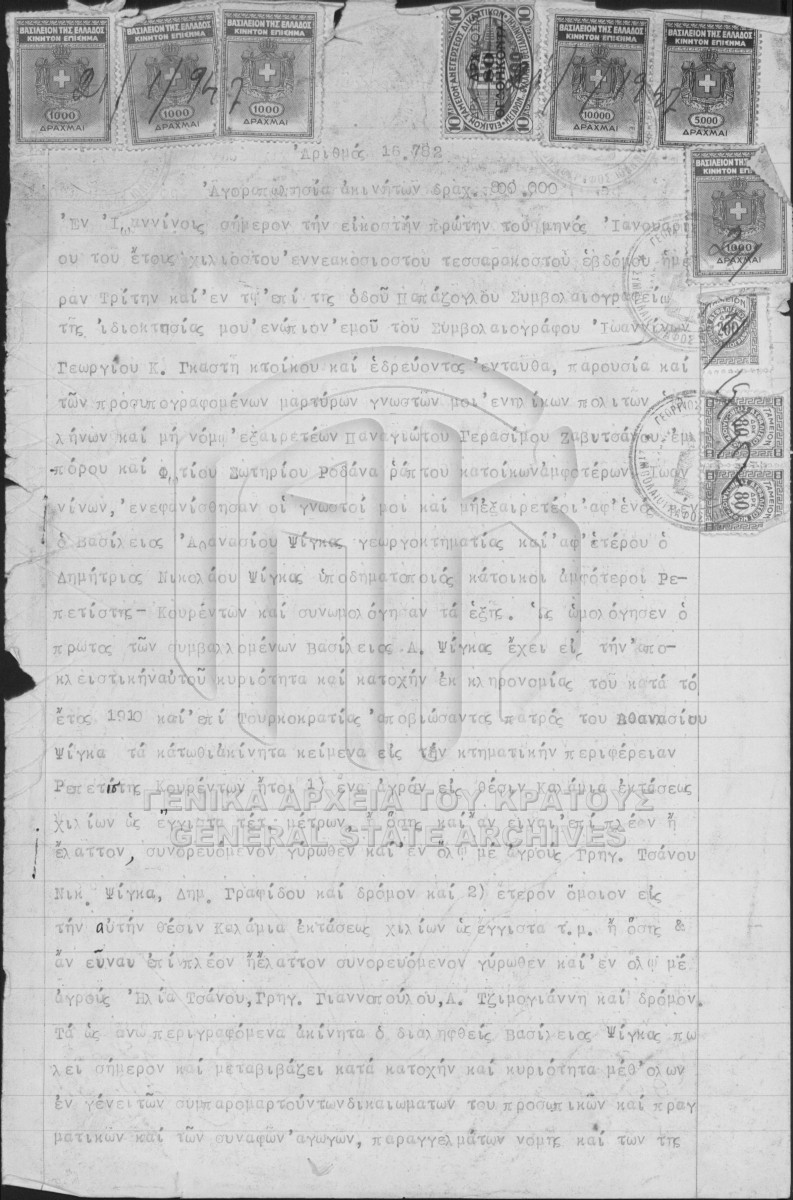 ΒΑΣΙΛΕΙΟΝ ΤΗΣ ΕΛΛΑΔΟΣ
ΚΙΝΗΤΟΝ ΕΠΙΣΗΜΑ
1000
ΔΡΑΧΜΑΙ
ΒΑΣΙΛΕΙΟΝ ΤΗΣ ΕΛΛΑΔΟΣ
ΚΙΝΗΤΟΝ ΕΠΙΣΗΜΑ
1000
ΔΡΑΧΜΑΙ
ΒΑΣΙΛΕΙΟΝ ΤΗΣ ΕΛΛΑΔΟΣ
ΚΙΝΗΤΟΝ ΕΠΙΣΗΜΑ
1000
ΔΡΑΧΜΑΙ
ΒΑΣΙΛΕΙΟΝ ΤΗΣ ΕΛΛΑΔΟΣ
ΚΙΝΗΤΟΝ ΕΠΙΣΗΜΑ
10000
ΔΡΑΧΜΑΙ
ΒΑΣΙΛΕΙΟΝ ΤΗΣ ΕΛΛΑΔΟΣ
ΚΙΝΗΤΟΝ ΕΠΙΣΗΜΑ
5000
ΔΡΑΧΜΑΙ
21/1/947
Ἀριθμός 16.782
Ἀγοραπωλησία ἀκινήτων δραχ. 800.000
Ἐν Ἰωαννίνοις σήμερον τήν εἰκοστήν πρώτην τοῦ μηνός Ἰανουαρί
ου τοῦ ἔτους χιλιοστοῦ ἐννεακοσιοστοῦ τεσσαρακοστοῦ ἑβδόμου ἡμέ
ραν Τρίτην καί ἐν τῷ ἐπί τῆς ὁδοῦ Παπάζογλου Συμβολαιογραφείῳ
τῆς ἰδιοκτησίας μου ἐνώπιον ἐμοῦ τοῦ Συμβολαιογράφου Ἰωαννίνων
Γεωργίου Κ. Γκαστῆ κτοίκου καί ἑδρεύοντος ἐνταῦθα, παρουσίᾳ καί
τῶν προσυπογραφομένων μαρτύρων γνωστῶν μοι ἐνηλίκων πολιτῶν Ἑλ
λήνων καί μή νόμῳ ἐξαιρετέων Παναγιώτου Γερασίμου Ζαβιτσάνου ἐμ
πόρου καί Φωτίου Σωτηρίου Ροδάνα ράπτου κατοίκων ἀμφοτέρων Ἰωαν
νίνων, ἐνεφανίσθησαν οἱ γνωστοί μοι καί μή ἐξαιρετέοι ἀφ' ἑνός
ὁ Βασίλειος Ἀθανασίου Ψίγκας γεωργοκτηματίας καί ἀφ' ἑτέρου ὁ
Δημήτριος Νικολάου Ψίγκας ὑποδηματοποιός κάτοικοι ἀμφότεροι Ρε-
πετίστης- Κουρέντων καί συνωμολόγησαν τά ἑξῆς. Ὡς ὡμολόγησεν ὁ
πρῶτος τῶν συμβαλλομένων Βασίλειος Α. Ψίγκας ἔχει εἰς τήν ἀπο-
κλειστικήν αὐτοῦ κυριότητα καί κατοχήν ἐκ κληρονομίας τοῦ κατά τό
ἔτος 1910 καί ἐπί Τουρκοκρατίας ἀποβιώσαντος πατρός του Ἀθανασίου
Ψίγκα τά κάτωθι ἀκίνητα κείμενα εἰς τήν κτηματικήν περιφέρειαν
Ρεπετίστης Κουρέντων ἤτοι 1) ἕνα ἀγρόν εἰς θέσιν Καλάμια ἐκτάσεως
χιλίων ὡς ἔγγιστα τετ. μέτρων, ἤ ὅσης καί ἄν εἶναι ἐπί πλέον ἤ
ἔλαττον, συνορευόμενον γύρωθεν καί ἐν ὅλῳ μέ ἀγρούς Γρηγ. Τσάνου
Νικ. Ψίγκα, Δημ. Γραφίδου καί δρόμον καί 2) ἕτερον ὅμοιον εἰς
τήν αὐτήν θέσιν Καλάμια ἐκτάσεως χιλίων ὡς ἔγγιστα τ.μ. ἤ ὅσης &
ἄν εἶναι ἐπί πλέον ἤ ἔλαττον συνορευόμενον γύρωθεν καί ἐν ὅλῳ μέ
ἀγρούς Ἠλία Τσάνου, Γρηγ. Γιαννοπούλου, Α. Τζιμογιάννη καί δρόμον.
Τά ὡς ἄνω περιγραφόμενα ἀκίνητα ὁ διαληφθείς Βασίλειος Ψίγκας πω
λεῖ σήμερον καί μεταβιβάζει κατά κατοχήν καί κυριότητα μεθ' ὅλων
ἐν γένει τῶν συμπαρομαρτούντων δικαιωμάτων του προσωπικῶν καί πραγ
ματικῶν καί τῶν συναφῶν ἀγωγῶν, παραγγελμάτων νομῆς καί τῶν τῆς
ΓΕΝΙΚΑ ΑΡΧΕΙΑ ΤΟΥ ΚΡΑΤΟΥΣ
GENERAL STATE ARCHIVES